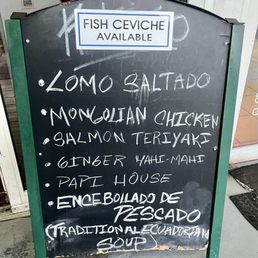 FISH CEVICHE
AVAILABLE
• LOMO SALTADO
• MONGOLIAN CHICKEN
• SALMON TERIYAKI
• GINGER MAHI-MAHI
• PAPI HOUSE
• ENCEBOLLADO DE
PESCADO
(TRADITIONAL ECUADORIAN
SOUP)